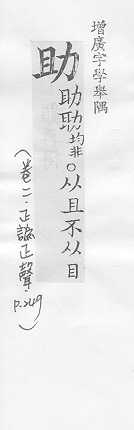 增廣字學舉隅
助
助均非。从且不从目
(卷二.正譌正聲.p.249)